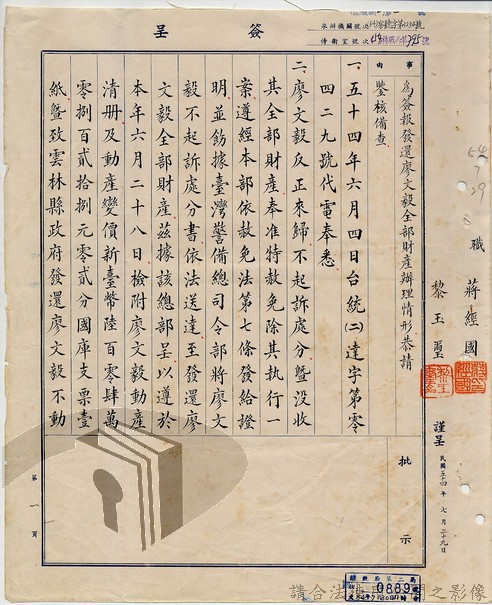 簽呈
承辦機關號次
侍衛室號次
號
號
事由
為簽報發還廖文毅全部財產辦理情形恭請
鑒核備查
一、五十四年六月四日台統㈡達字第零
四二九號代電奉悉
二、廖文毅反正來歸不起訴處分暨沒收
其全部財產奉准特赦免除其執行一
案遵經本部依赦免法第七條發給證
明並飭據臺灣警備總司令部將廖文
毅不起訴處分書依法送達至發還廖
文毅全部財產茲據該總部呈以遵於
本年六月二十八日檢附廖文毅動產
清册及動產變價新臺幣陸百零肆萬
零捌百貳拾捌元零貳分國庫支票壹
紙暨致雲林縣政府發還廖文毅不動
批示
職
蔣經國
黎玉璽
謹呈
民國五十四年七月二十九日
54
7
29
第一頁
總統府第二局
0889